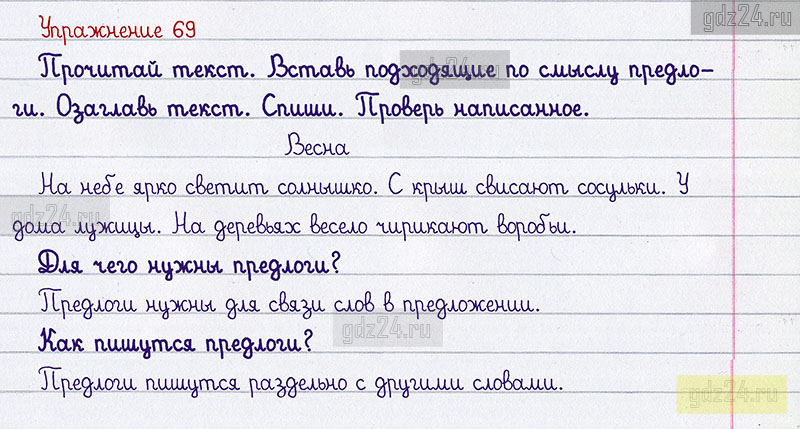 gdz24.ru
Упражнение 69
Прочитай текст. Вставь подходящие по смыслу предло-
gdz24.ru
ги. Озаглавь текст. Спиши. Проверь написанное.
Весна
На небе ярко светит солнышко. С крыш свисают сосульки. У
gdz24.ru
дома лужицы. На деревьях весело чирикают воробьи.
Для чего нужны предлоги?
Предлоги нужны для связи слов в предложении.
gdz24.ru
Как пишутся предлоги?
Предлоги пишутся раздельно с другими словами.
gdz24.ru